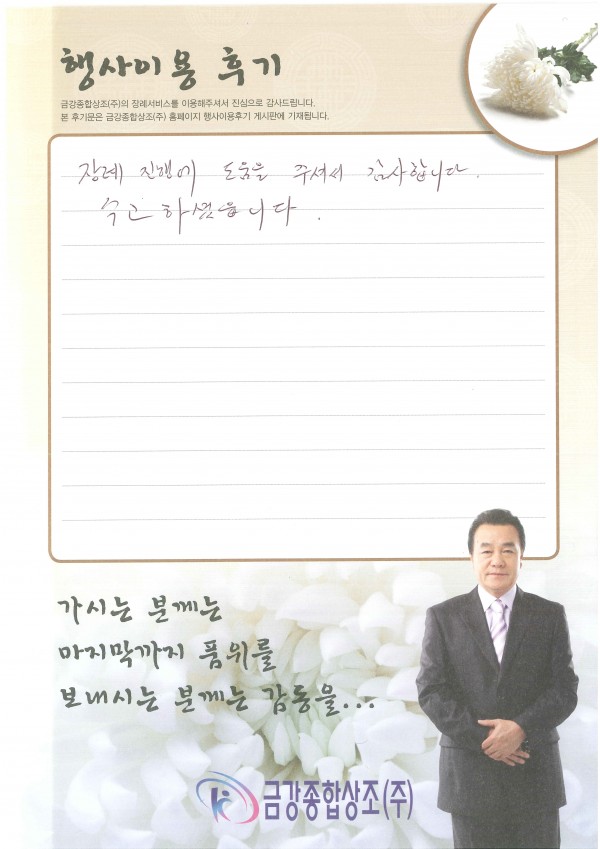 행사이용 후기
금강종합상조(주)의 장례서비스를 이용해주셔서 진심으로 감사드립니다.
본 후기문은 금강종합상조(주) 홈페이지 행사이용후기 게시판에 기재됩니다.
장례 진행에 도움을 주셔서 감사합니다.
수고 하셨습니다.
가시는 분께는
마지막까지 품위를
보내시는 분께는 감동을...
금강종합상조(주)